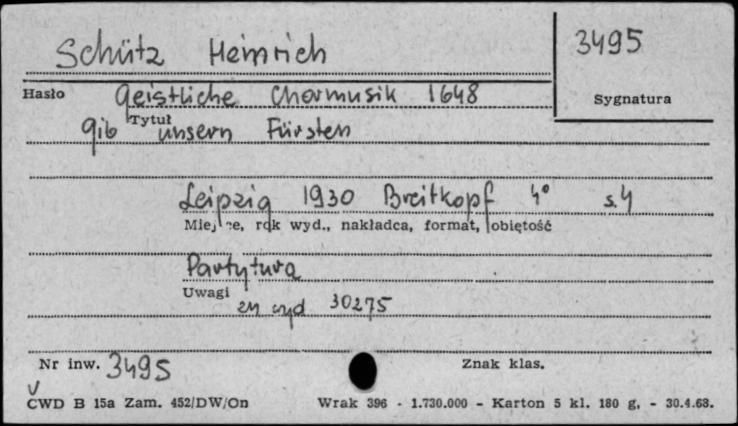 Schütz Heinrich
3495
Hasło
Geistliche Chormusik 1648
Sygnatura
Tytuł
gib unsern Fürsten
Leipzig 1930 Breitkopf 4° s. 4
Miejsce, rok wyd., nakładca, format, objętość
Partytura
Uwagi
zn wyd 30275
Nr inw. 3495
Znak klas.
CWD B 15a Zam. 452/DW/On
Wrak 396 - 1.730.000 - Karton 5 kl. 180 g. - 30.4.68.